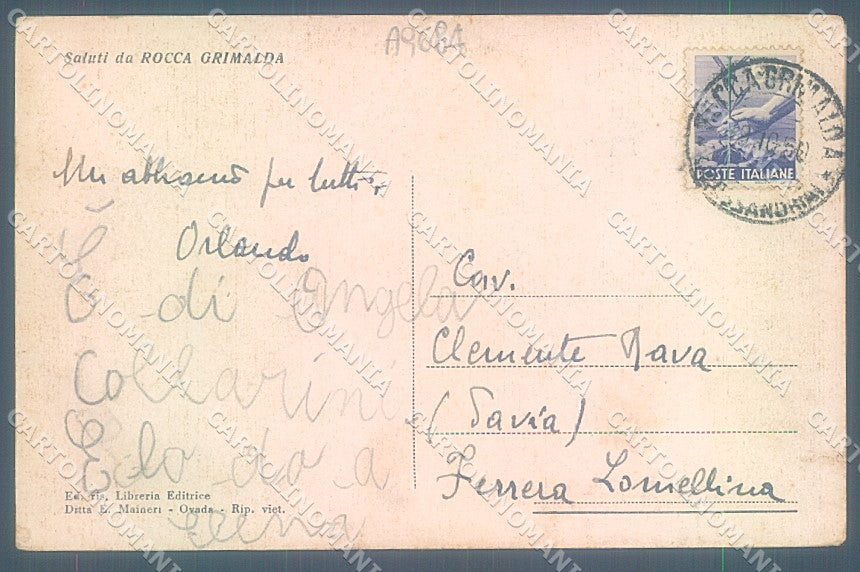 A9684
Saluti da ROCCA GRIMALDA
ROCCA GRIMALDA
10.50
ALESSANDRIA
POSTE ITALIANE
Un abbraccio per tutti
Orlando
È di Angela
Collarini
E lo do a
Cav.
Clemente Nava
(Pavia)
Ferrera Lomellina
Ed. ris. Libreria Editrice
Ditta E. Maineri - Ovada - Rip. viet.
CARTOLINOMANIA